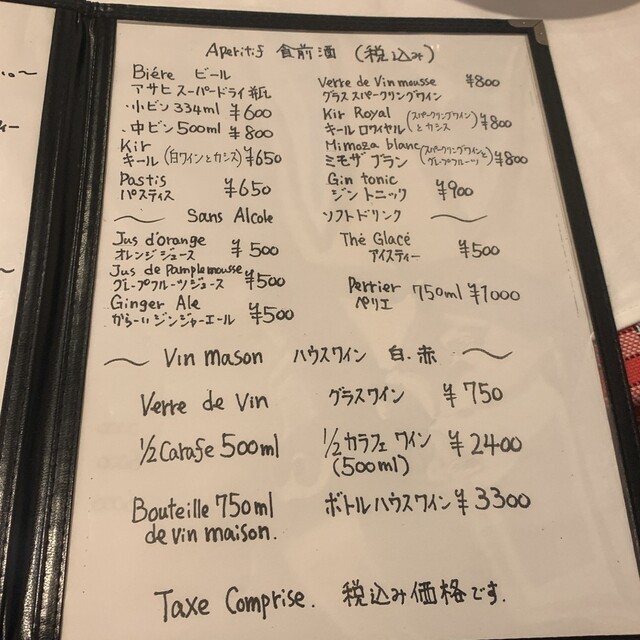 Aperitif 食前酒 (税込み)
Biére ビール
アサヒ スーパードライ 瓶
・小ビン 334ml ¥600
・中ビン 500ml ¥800
Kir
キール (白ワインとカシス) ¥650
Pastis
パスティス ¥650
Verre de Vin mousse ¥800
グラス スパークリングワイン
Kir Royal
キール ロワイヤル (スパークリングワインとカシス) ¥800
Mimoza blanc
ミモザ ブラン (スパークリングワインとグレープフルーツ) ¥800
Gin tonic
ジン トニック ¥900
〜 Sans Alcole ソフトドリンク 〜
Jus d'orange
オレンジ ジュース ¥500
Jus de Pamplemousse
グレープフルーツ ジュース ¥500
Ginger Ale
からーいジンジャーエール ¥500
Thé Glacé
アイスティー ¥500
Perrier
ペリエ 750ml ¥1000
〜 Vin mason ハウスワイン 白.赤 〜
Verre de Vin グラスワイン ¥750
1/2 Carafe 500ml 1/2 カラフェ ワイン ¥2400
(500ml)
Bouteille 750ml ボトルハウスワイン ¥3300
de vin maison.
Taxe Comprise. 税込み価格です.